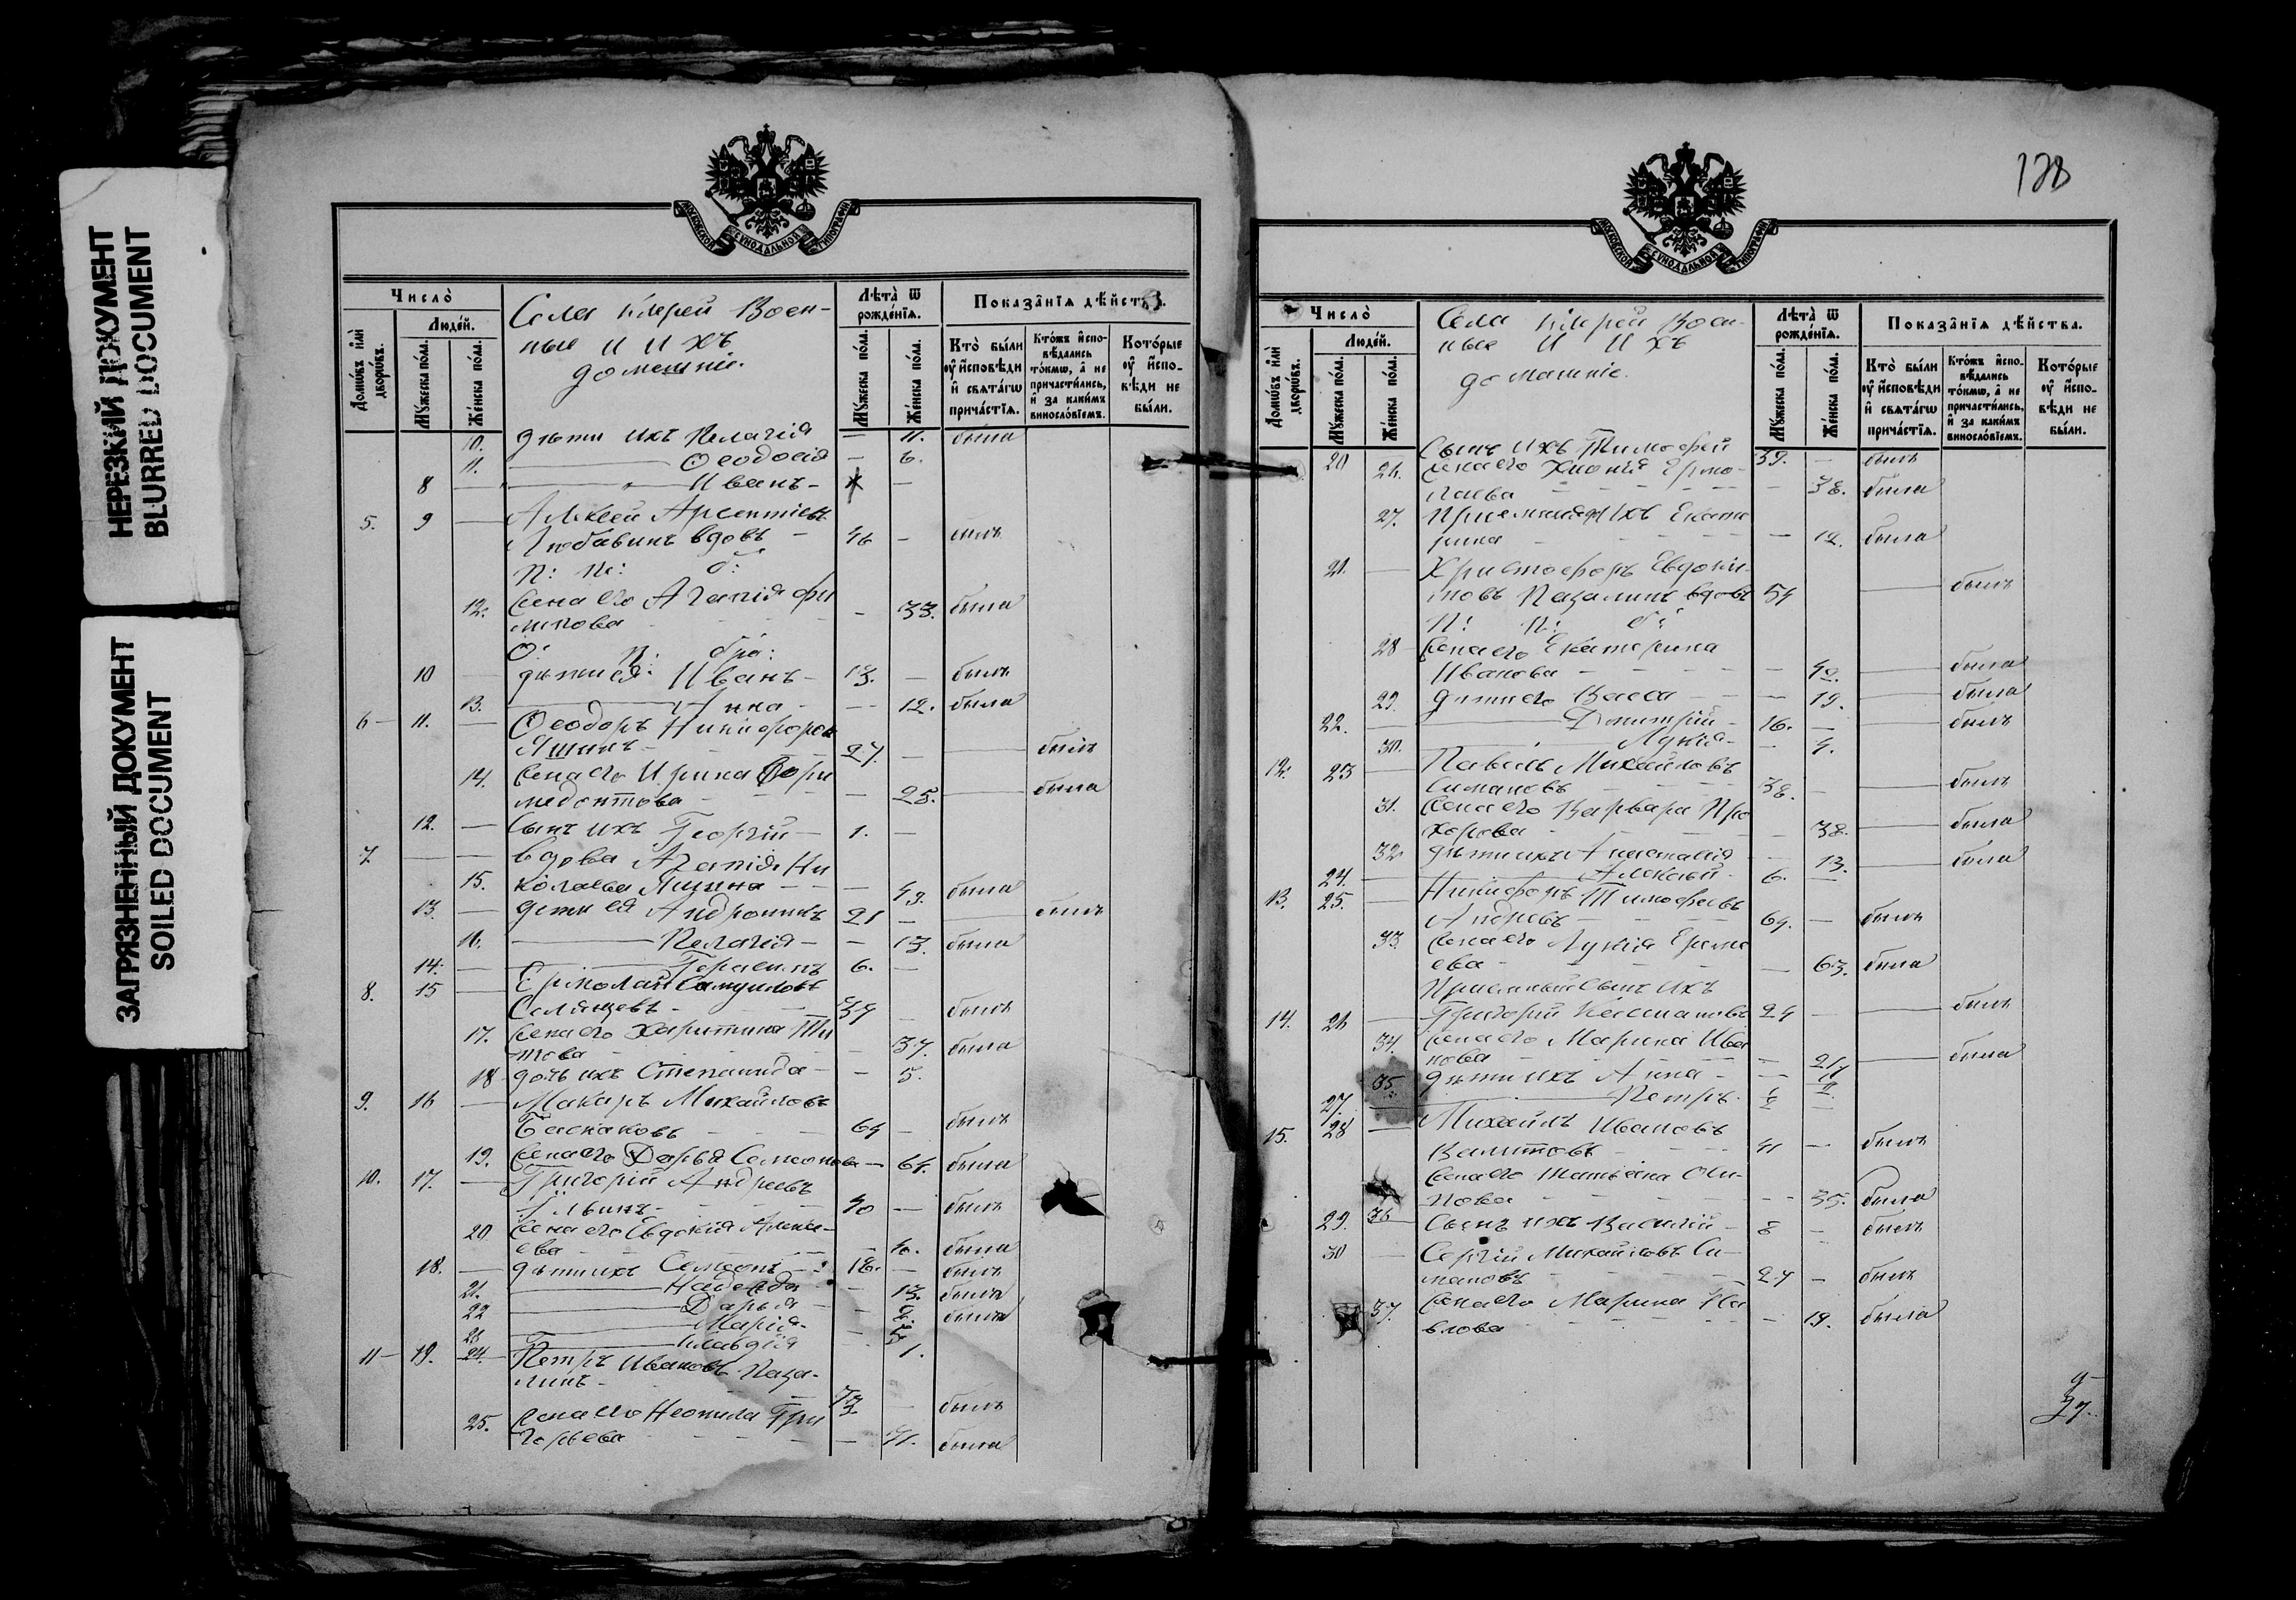 НЕРЕЗКИЙ ДОКУМЕНТ
BLURRED DOCUMENT
ЗАГРЯЗНЕННЫЙ ДОКУМЕНТ
SOILED DOCUMENT
МОСКОВСКОЙ СѴНОДАЛЬНОЙ ТИПОГРАФІИ
Число̀
Домѡ́въ и҆лѝ дворѡ́въ.
Люде́й.
Мꙋ́жеска по́ла.
Же́нска по́ла.
Села Кверей Воен-
ные и ихъ
домашніе.
Лѣта̀ ѿ рожде́нїѧ.
Мꙋ́жеска по́ла.
Же́нска по́ла.
Показа̑нїѧ дѣ́йства.
Кто̀ бы́ли
ᲂу҆ и҆́сповѣди
и҆ свѧта́гѡ
прича́стїѧ.
Кто́жъ и҆спо-
вѣ́дались
то́кмѡ, а҆ не
причасти́лись,
и҆ за каки́мъ
винословїемъ.
Кото́рые
ᲂу҆ и҆́спо-
вѣди не
бы́ли.
10. дѣти ихъ Пелагія — 11. была
11. — Ѳеодосія — 6.
8 — Иванъ — —
5. 9 — Алексей Арсентіевъ
вдовъ — 46 — былъ
12. жена его Агапія Фи
липова — 33. была
10 — дѣти ея: Иванъ — 13. — былъ
13. — Анна — 12. была
6 — 11. — Ѳеодоръ Никифоровъ
Яшинъ — 27. — — былъ
14. жена его Ирина
— 25. — была
12. — сынъ ихъ Георгій — 1. —
7. — — вдова Агапія Ни
15. колаева Яшина — — 49. была
13. — дети ея Андроникъ 21 — — былъ
16. — Пелагія — — 13. была
14. — Герасимъ 6. —
8. 15 — Ермолай Самуиловъ
Селянцевъ — 39 — былъ
17. жена его Харитина Ти
това — 37. была
18 дочь ихъ Степанида — — 5.
9. 16 — Макаръ Михайловъ
Баскаковъ — 64 — былъ
19. жена его Дарья Семеонова — 64. была
10. 17. — Григорій Андреевъ
— 40 — былъ
20 жена его Евдокія
ева — 40. была
18. — дѣти ихъ Семеонъ — 16. — былъ
21. — Надежда — 13. была
22 — Дарья — 8. была
23 — Марія — 5
24. — Клавдія — 1.
11 — 19. — Петръ Ивановъ Каза-
линъ — 73. — былъ
25. жена его Неонила Гри
горьева — 71. была
128
МОСКОВСКОЙ СѴНОДАЛЬНОЙ ТИПОГРАФІИ
Число̀
Домѡ́въ и҆лѝ дворѡ́въ.
Люде́й.
Мꙋ́жеска по́ла.
Же́нска по́ла.
Села Кверей Воен-
ные и ихъ
домашніе.
Лѣта̀ ѿ рожде́нїѧ.
Мꙋ́жеска по́ла.
Же́нска по́ла.
Показа̑нїѧ дѣ́йства.
Кто̀ бы́ли
ᲂу҆ и҆́сповѣди
и҆ свѧта́гѡ
прича́стїѧ.
Кто́жъ и҆спо-
вѣ́дались
то́кмѡ, а҆ не
причасти́лись,
и҆ за каки́мъ
винословїемъ.
Кото́рые
ᲂу҆ и҆́спо-
вѣди не
бы́ли.
20 Сынъ ихъ Тимофей 39. — былъ
26. жена его Хіонія Ермо-
лаева — 38. была
27. ихъ Екате
рина — 12. была
21. — Христофоръ Евдоки-
мовъ Казалинъ вдовъ 54 — былъ
28 жена его Екатерина
Иванова — 40. — была
29. дѣти его Васса — 19. — была
22. — Димитрій — 16. — — былъ
30. — Лукія — — 4.
12. 23 — Павелъ Михайловъ
Симановъ — 38. — — былъ
31. жена его Варвара Про
хорова — 38. — была
32 дѣти ихъ Анастасія — 13. — была
24. — Алексей — 6. —
13. 25. — Никифоръ Тимофеевъ
Андреевъ — 64. — былъ
33 жена его Лукія Ереме
ева — 63. была
Пріемный сынъ ихъ
14. 26 — Григорій 24 — — былъ
34. жена его Марина Ива
нова — 21 — была
35. дѣти ихъ Анна —
27. — Петръ.
15. 28 — Михаилъ Ивановъ
41 — былъ
жена его Татьяна Оси-
пова — 35. была
29. 36 — Сынъ ихъ Василій — 8 — былъ
30 — Сергій Михайловъ Си-
мановъ — 24 — былъ
37. жена его Марина Па
влова — 19. была